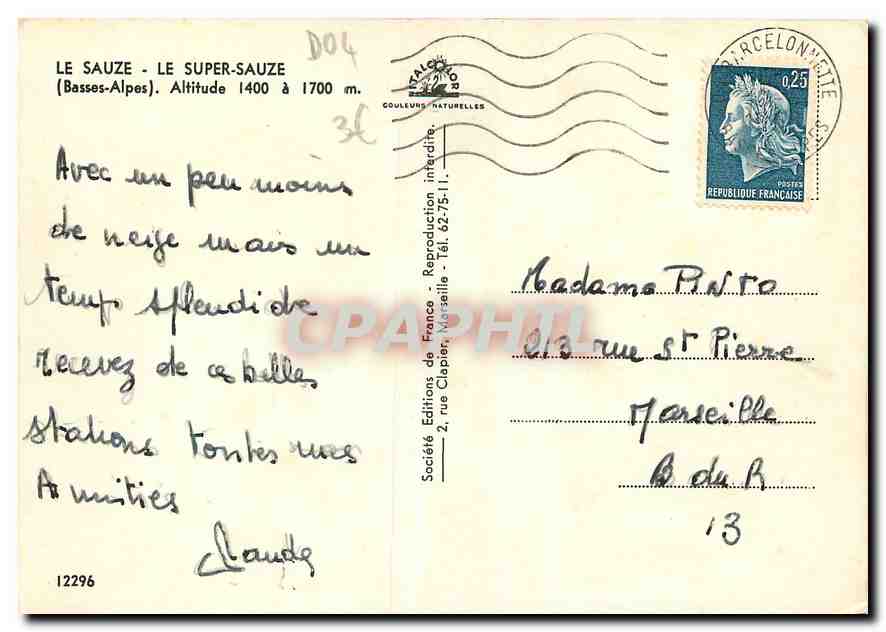 LE SAUZE - LE SUPER-SAUZE
(Basses-Alpes). Altitude 1400 à 1700 m.
D04
3€
ITALCOLOR
COULEURS NATURELLES
BARCELONNETTE
0,25
POSTES
REPUBLIQUE FRANÇAISE
Avec un peu moins
de neige mais un
temps splendide
Recevez de ces belles
stations toutes mes
Amitiés
Claude
Société Editions de France - Reproduction interdite.
2, rue Clapier, Marseille - Tél. 62-75-11.
Madame PINTO
213 rue St Pierre
Marseille
B du R
13
CPAPHIL
12296